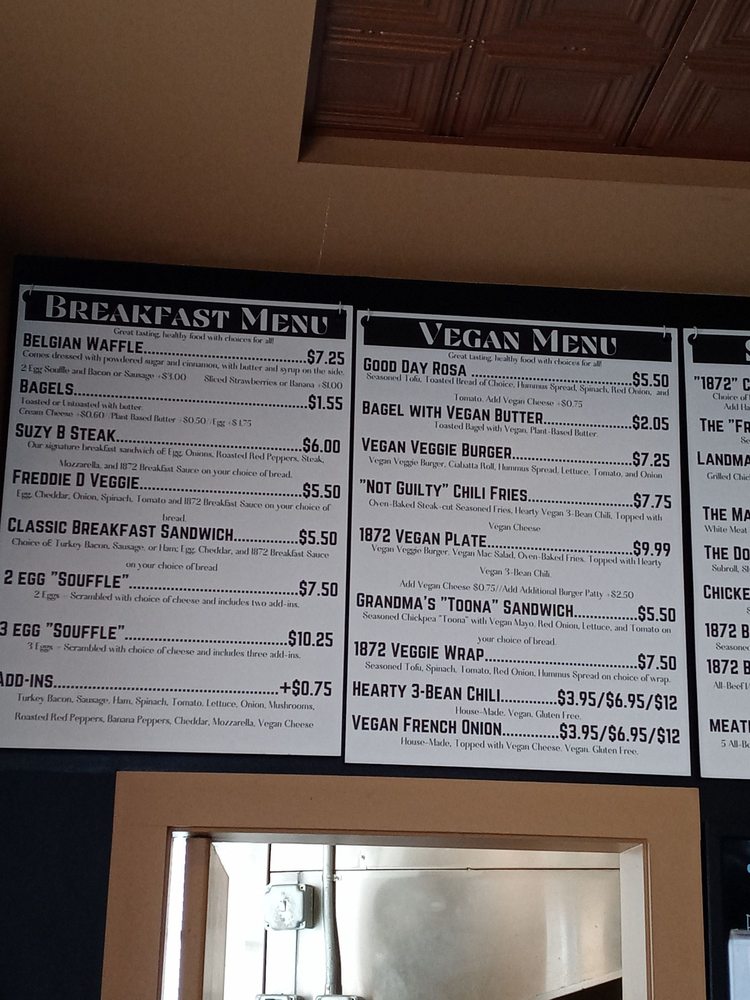 BREAKFAST MENU
Great tasting, healthy food with choices for all!
BELGIAN WAFFLE................................$7.25
Comes dressed with powdered sugar and cinnamon, with butter and syrup on the side.
2 Egg Souffle and Bacon or Sausage +$3.00 Sliced Strawberries or Banana +$1.00
BAGELS................................$1.55
Toasted or Untoasted with butter.
Cream Cheese +$0.60 / Plant Based Butter +$0.50 / Egg +$1.75
SUZY B STEAK................................$6.00
Our signature breakfast sandwich of Egg, Onions, Roasted Red Peppers, Steak,
Mozzarella, and 1872 Breakfast Sauce on your choice of bread.
FREDDIE D VEGGIE................................$5.50
Egg, Cheddar, Onion, Spinach, Tomato and 1872 Breakfast Sauce on your choice of
bread.
CLASSIC BREAKFAST SANDWICH................$5.50
Choice of: Turkey Bacon, Sausage, or Ham; Egg, Cheddar, and 1872 Breakfast Sauce
on your choice of bread
2 EGG "SOUFFLE"................................$7.50
2 Eggs - Scrambled with choice of cheese and includes two add-ins.
3 EGG "SOUFFLE"................................$10.25
3 Eggs - Scrambled with choice of cheese and includes three add-ins.
ADD-INS................................+$0.75
Turkey Bacon, Sausage, Ham, Spinach, Tomato, Lettuce, Onion, Mushrooms,
Roasted Red Peppers, Banana Peppers, Cheddar, Mozzarella, Vegan Cheese
VEGAN MENU
Great tasting, healthy food with choices for all!
GOOD DAY ROSA ................................$5.50
Seasoned Tofu, Toasted Bread of Choice, Hummus Spread, Spinach, Red Onion, and
Tomato. Add Vegan Cheese +$0.75
BAGEL WITH VEGAN BUTTER................$2.05
Toasted Bagel with Vegan, Plant-Based Butter.
VEGAN VEGGIE BURGER................................$7.25
Vegan Veggie Burger, Ciabatta Roll, Hummus Spread, Lettuce, Tomato, and Onion
"NOT GUILTY" CHILI FRIES................................$7.75
Oven-Baked Steak-cut Seasoned Fries, Hearty Vegan 3-Bean Chili, Topped with
Vegan Cheese
1872 VEGAN PLATE................................$9.99
Vegan Veggie Burger, Vegan Mac Salad, Oven-Baked Fries, Topped with Hearty
Vegan 3-Bean Chili.
Add Vegan Cheese $0.75//Add Additional Burger Patty +$2.50
GRANDMA'S "TOONA" SANDWICH................$5.50
Seasoned Chickpea "Toona" with Vegan Mayo, Red Onion, Lettuce, and Tomato on
your choice of bread.
1872 VEGGIE WRAP................................$7.50
Seasoned Tofu, Spinach, Tomato, Red Onion, Hummus Spread on choice of wrap.
HEARTY 3-BEAN CHILI............$3.95/$6.95/$12
House-Made, Vegan, Gluten Free.
VEGAN FRENCH ONION............$3.95/$6.95/$12
House-Made, Topped with Vegan Cheese. Vegan. Gluten Free.
S
"1872" C
Choice of
Add Ha
THE "FR
LANDMA
Grilled Chic
THE MA
White Meat
THE DO
Subroll, Sl
CHICKE
1872 B
Seasone
1872 B
All-Beef
MEAT
5 All-Be